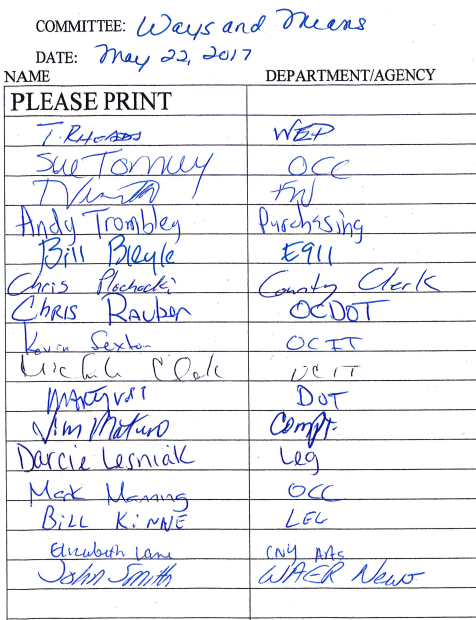 COMMITTEE: Ways and Means
DATE: May 22, 2017
NAME DEPARTMENT/AGENCY
PLEASE PRINT
T. RHOADS WEP
Sue Tormey OCC
Andy Trombley Purchasing
Bill Bleyle E911
Chris Plochocki County Clerk
CHRIS RAUBER OCDOT
Kevin Sexton OCIT
Clark OCIT
DOT
Jim Maturo Compt.
Darcie Lesniak Leg
Mark Manning OCC
BILL KINNE LEG
Elizabeth Lane CNY Arts
John Smith WAER News